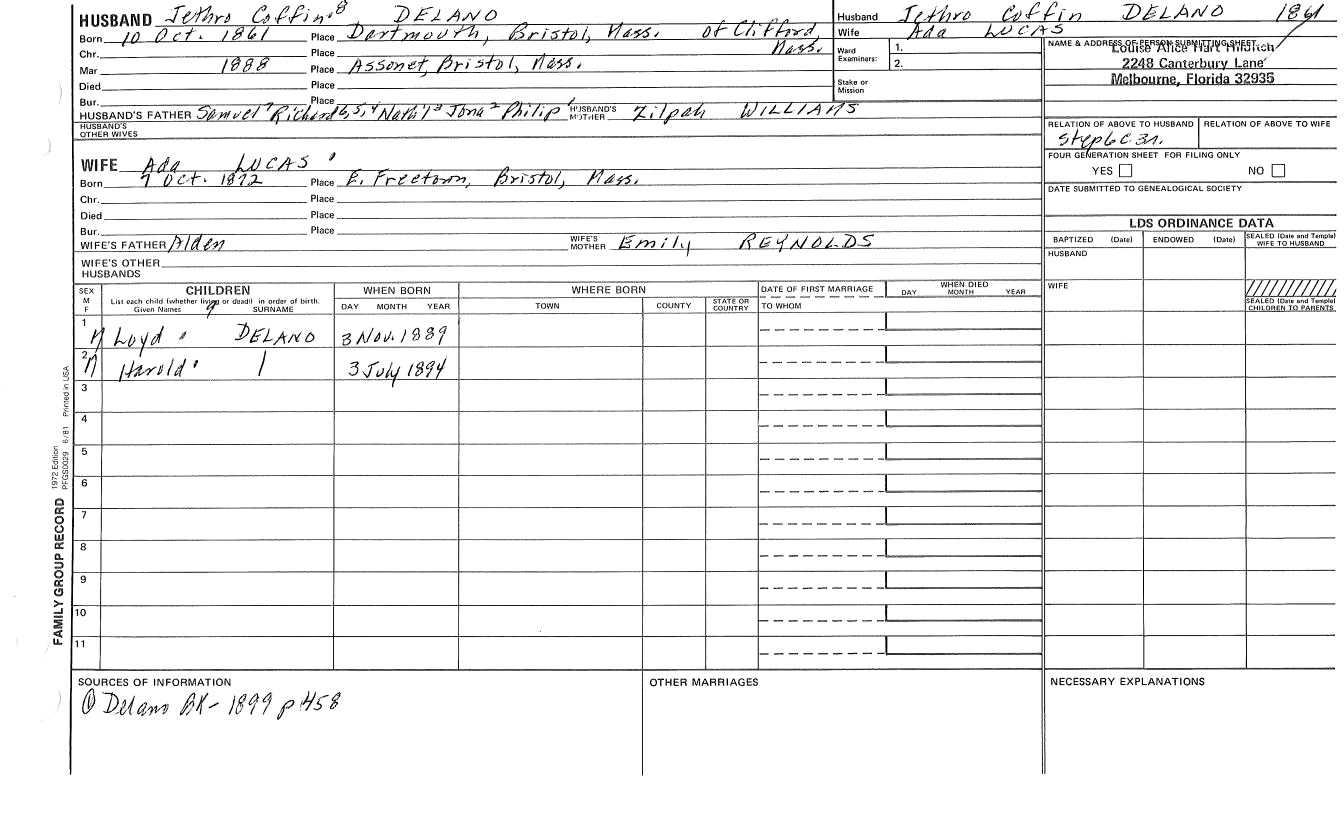 HUSBAND Jethro Coffin 8 DELANO
Born 10 Oct. 1861 Place Dartmouth, Bristol, Mass. of Clifford, Mass.
Chr. Place
Mar 1888 Place Assonet, Bristol, Mass.
Died Place
Bur. Place
HUSBAND'S FATHER Samuel 7 Richard 6, 5, 4 Nath'l 3 Jona 2 Philip 1 HUSBAND'S MOTHER Zilpah WILLIAMS
HUSBAND'S OTHER WIVES
WIFE Ada LUCAS
Born 7 Oct. 1872 Place E. Freetown, Bristol, Mass.
Chr. Place
Died Place
Bur. Place
WIFE'S FATHER Alden WIFE'S MOTHER Emily REYNOLDS
WIFE'S OTHER HUSBANDS
Husband Jethro Coffin DELANO 1861
Wife Ada LUCAS
Ward Examiners: 1.
2.
Stake or Mission
NAME & ADDRESS OF PERSON SUBMITTING SHEET
Louise Alice Hart
2248 Canterbury Lane
Melbourne, Florida 32935
RELATION OF ABOVE TO HUSBAND RELATION OF ABOVE TO WIFE
FOUR GENERATION SHEET FOR FILING ONLY
YES NO
DATE SUBMITTED TO GENEALOGICAL SOCIETY
LDS ORDINANCE DATA
BAPTIZED (Date) ENDOWED (Date) SEALED (Date and Temple) WIFE TO HUSBAND
HUSBAND
WIFE
SEALED (Date and Temple) CHILDREN TO PARENTS
SEX M F CHILDREN WHEN BORN WHERE BORN DATE OF FIRST MARRIAGE WHEN DIED
List each child (whether living or dead) in order of birth. 9
Given Names SURNAME DAY MONTH YEAR TOWN COUNTY STATE OR COUNTRY TO WHOM DAY MONTH YEAR
1 M Loyd DELANO 3 Nov. 1889
2 M Harold 3 July 1894
3
4
5
6
7
8
9
10
11
FAMILY GROUP RECORD
1972 Edition
PFGS0029 6/81 Printed in USA
SOURCES OF INFORMATION
① Delano BK- 1899 p 458
OTHER MARRIAGES
NECESSARY EXPLANATIONS